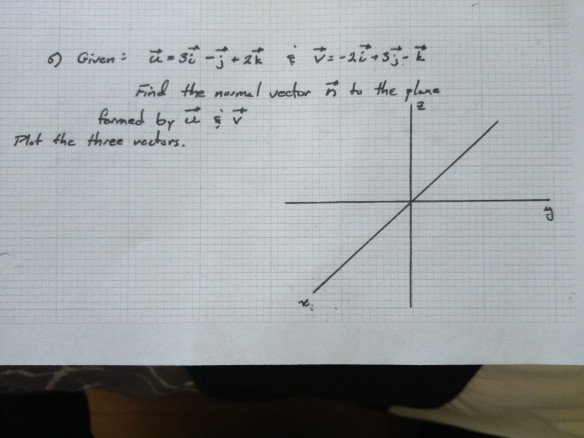 6) Given : u⃗ = 3i⃗ - j⃗ + 2k⃗ & v⃗ = -2i⃗ + 3j⃗ - k⃗
Find the normal vector n⃗ to the plane
formed by u⃗ & v⃗
Plot the three vectors.
z
y
x